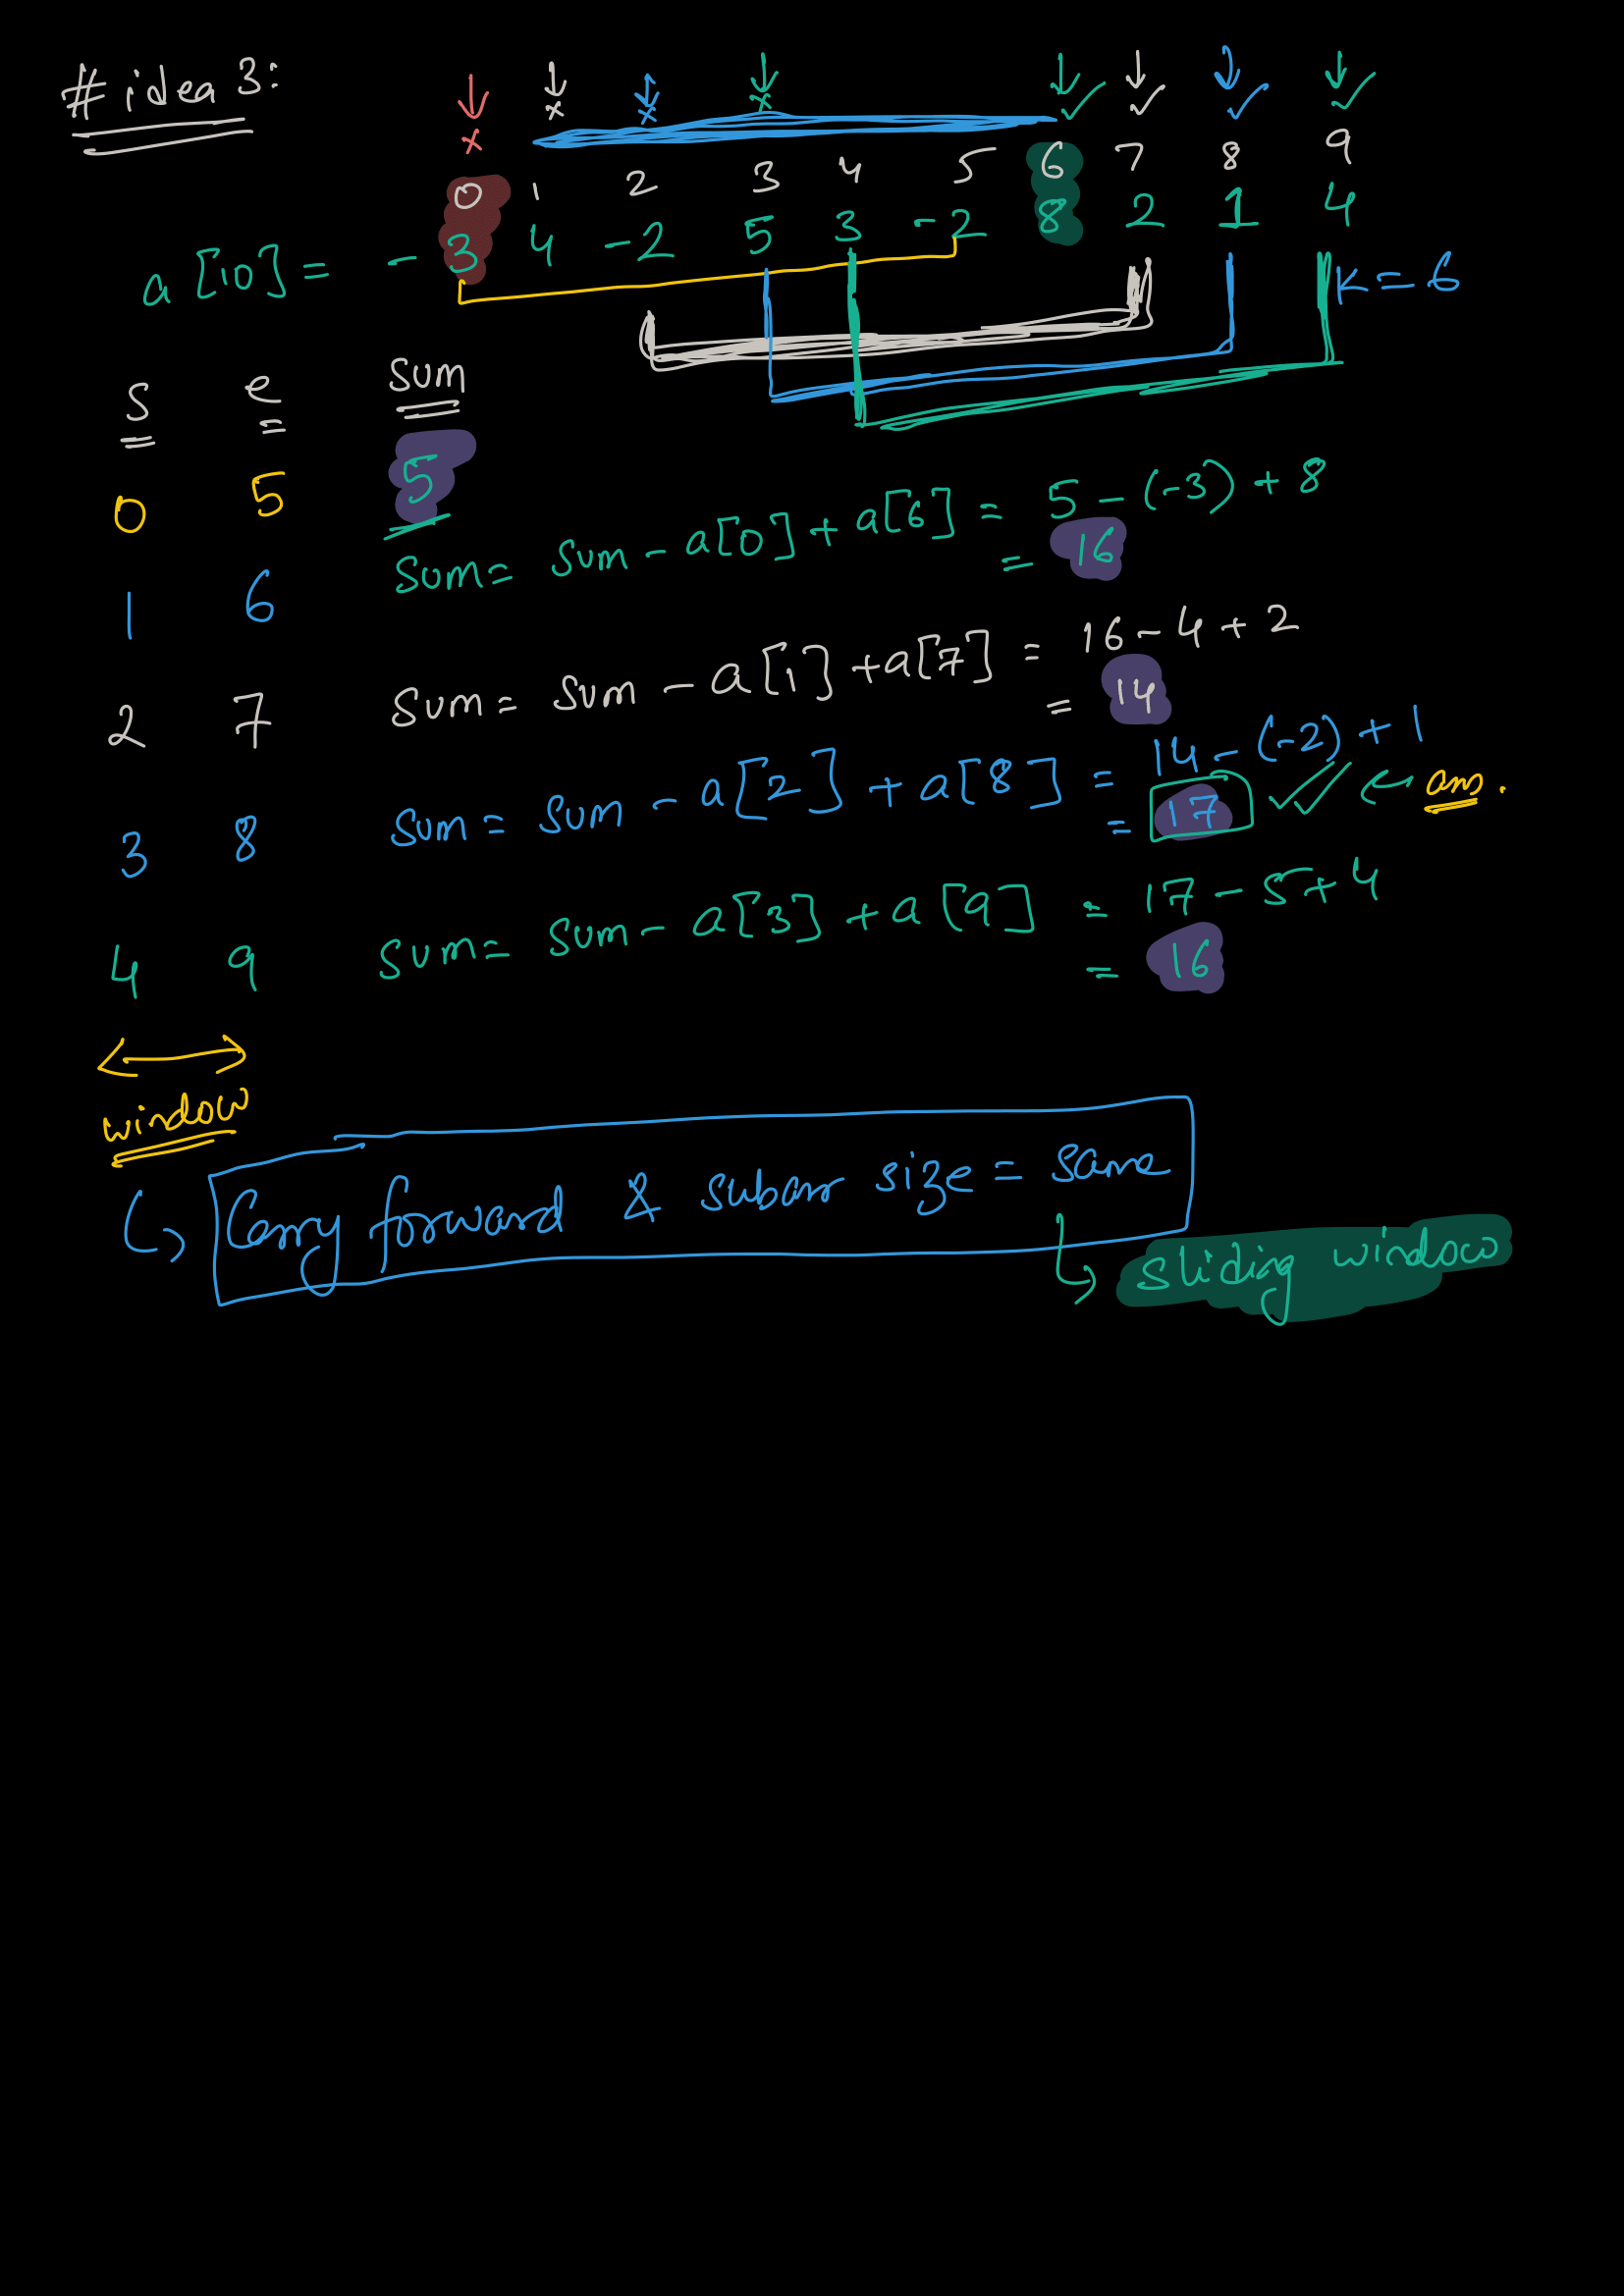 # idea 3:
0 1 2 3 4 5 6 7 8 9
a [10] = -3 4 -2 5 3 -2 8 2 1 4
K = 6
s e sum
0 5 5
sum = sum - a[0] + a[6] = 5 - (-3) + 8
1 6 = 16
sum = sum - a[1] + a[7] = 16 - 4 + 2
2 7 = 14
sum = sum - a[2] + a[8] = 14 - (-2) + 1
3 8 = 17 ← ans.
sum = sum - a[3] + a[9] = 17 - 5 + 4
4 9 = 16
window
Carry forward & subarr size = same
sliding window